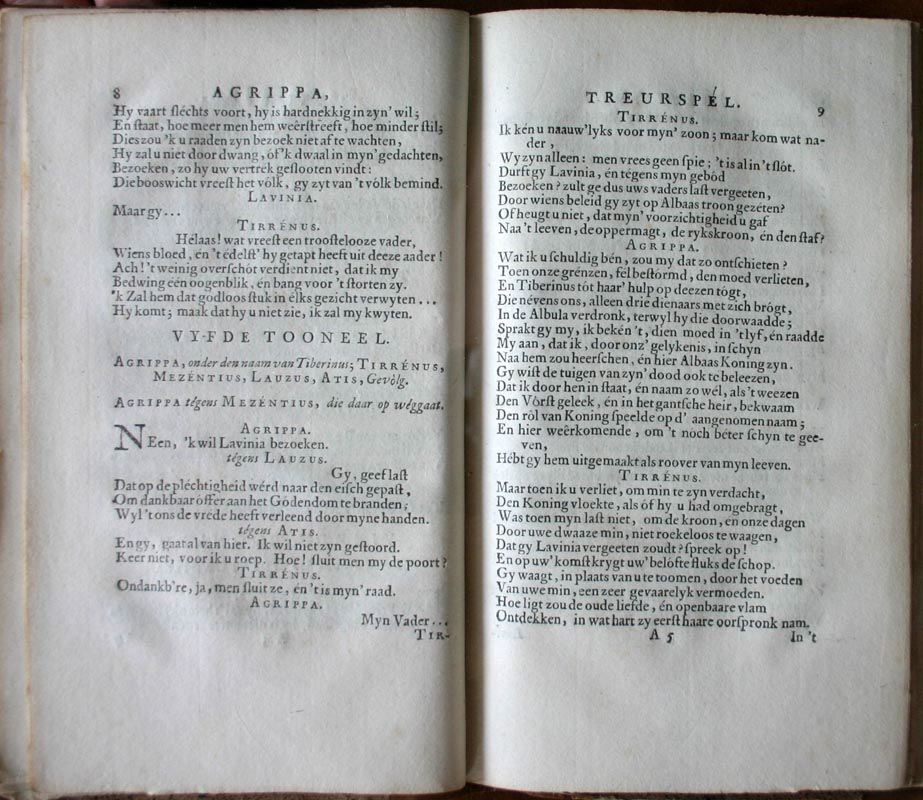 8 AGRIPPA,
Hy vaart ſléchts voort, hy is hardnekkig in zyn' wil;
En ſtaat, hoe meer men hem weêrſtreeft, hoe minder ſtil;
Dies zou 'k u raaden zyn bezoek niet af te wachten,
Hy zal u niet door dwang, óf 'k dwaal in myn' gedachten,
Bezoeken, zo hy uw vertrek geſlooten vindt:
Die booswicht vreeſt het vólk, gy zyt van 't vólk bemind.
LAVINIA.
Maar gy...
TIRRÉNUS.
Hélaas! wat vreeſt een trooſtelooze vader,
Wiens bloed, én 't édelſt' hy getapt heeft uit deeze aader!
Ach! 't weinig overſchót verdient niet, dat ik my
Bedwing één oogenblik, én bang voor 't ſtorten zy.
'k Zal hem dat godloos ſtuk in élks gezicht verwyten...
Hy komt; maak dat hy u niet zie, ik zal my kwyten.
VYFDE TOONEEL.
AGRIPPA, onder den naam van Tiberinus; TIRRÉNUS,
MEZÉNTIUS, LAUZUS, ATIS, Gevòlg.
AGRIPPA tégens MEZÉNTIUS, die daar op wéggaat.
AGRIPPA.
NEen, 'k wil Lavinia bezoeken.
tégens LAUZUS.
Gy, geef laſt
Dat op de pléchtigheid wérd naar den eiſch gepaſt,
Om dankbaar óffer aan het Gódendom te branden;
Wyl 't ons de vréde heeft verleend door myne handen.
tégens ATIS.
En gy, gaat al van hier. Ik wil niet zyn geſtoord.
Keer niet, voor ik u roep. Hoe! ſluit men my de poort?
TIRRÉNUS.
Ondankb're, ja, men ſluit ze, én 't is myn' raad.
AGRIPPA.
Myn Vader...
TIR-
TREURSPÉL. 9
TIRRÉNUS.
Ik kén u naauw'lyks voor myn' zoon; maar kom wat na-
der,
Wy zyn alleen: men vrees geen ſpie; 't is al in 't ſlót.
Durft gy Lavinia, én tégens myn gebód
Bezoeken? zult ge dus uws vaders laſt vergeeten,
Door wiens beleid gy zyt op Albaas troon gezéten?
Of heugt u niet, dat myn' voorzichtigheid u gaf
Naa 't leeven, de oppermagt, de rykskroon, én den ſtaf?
AGRIPPA.
Wat ik u ſchuldig bén, zou my dat zo ontſchieten?
Toen onze grénzen, fél beſtórmd, den moed verlieten,
En Tiberinus tót haar' hulp op deezen tógt,
Die névens ons, alleen drie dienaars met zich brógt,
In de Albula verdronk, terwyl hy die doorwaadde;
Spraakt gy my, ik bekén't, dien moed in 't lyf, én raadde
My aan, dat ik, door onz' gelykenis, in ſchyn
Naa hem zou heerſchen, én hier Albaas Koning zyn.
Gy wiſt de tuigen van zyn' dood ook te beleezen,
Dat ik door hen in ſtaat, én naam zo wél, als 't weezen
Den Vórſt geleek, én in het gantſche heir, bekwaam
Den ròl van Koning ſpeelde op d' aangenomen naam;
En hier weêrkomende, om 't noch béter ſchyn te gee-
ven,
Hébt gy hem uitgemaakt als roover van myn leeven.
TIRRÉNUS.
Maar toen ik u verliet, om min te zyn verdacht,
Den Koning vloekte, als óf hy u had omgebragt,
Was toen myn laſt niet, om de kroon, én onze dagen
Door uwe dwaaze min, niet roekeloos te waagen,
Dat gy Lavinia vergeeten zoudt? ſpreek op!
En op uw' komſt krygt uw' belófte fluks de ſchop.
Gy waagt, in plaats van u te toomen, door het voeden
Van uwe min, een zeer gevaarelyk vermoeden.
Hoe ligt zou de oude liefde, én openbaare vlam
Ontdekken, in wat hart zy eerſt haare oorſpronk nam.
A 5 In 't